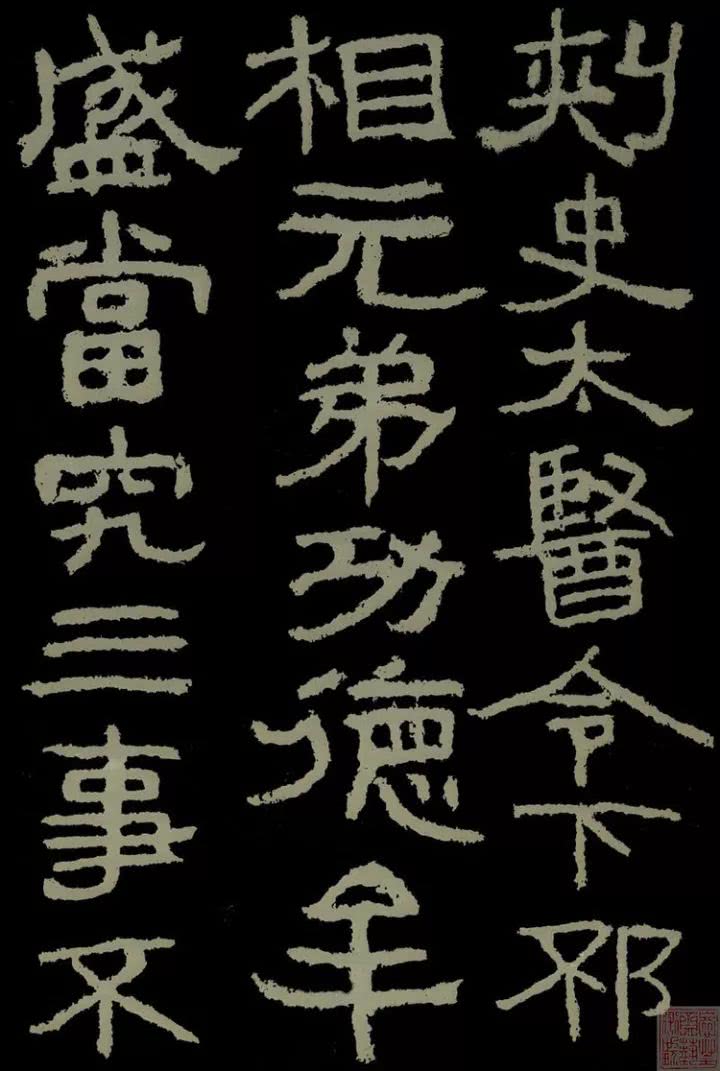 刺史太醫令下邳
相元弟功德牟
盛當究三事不